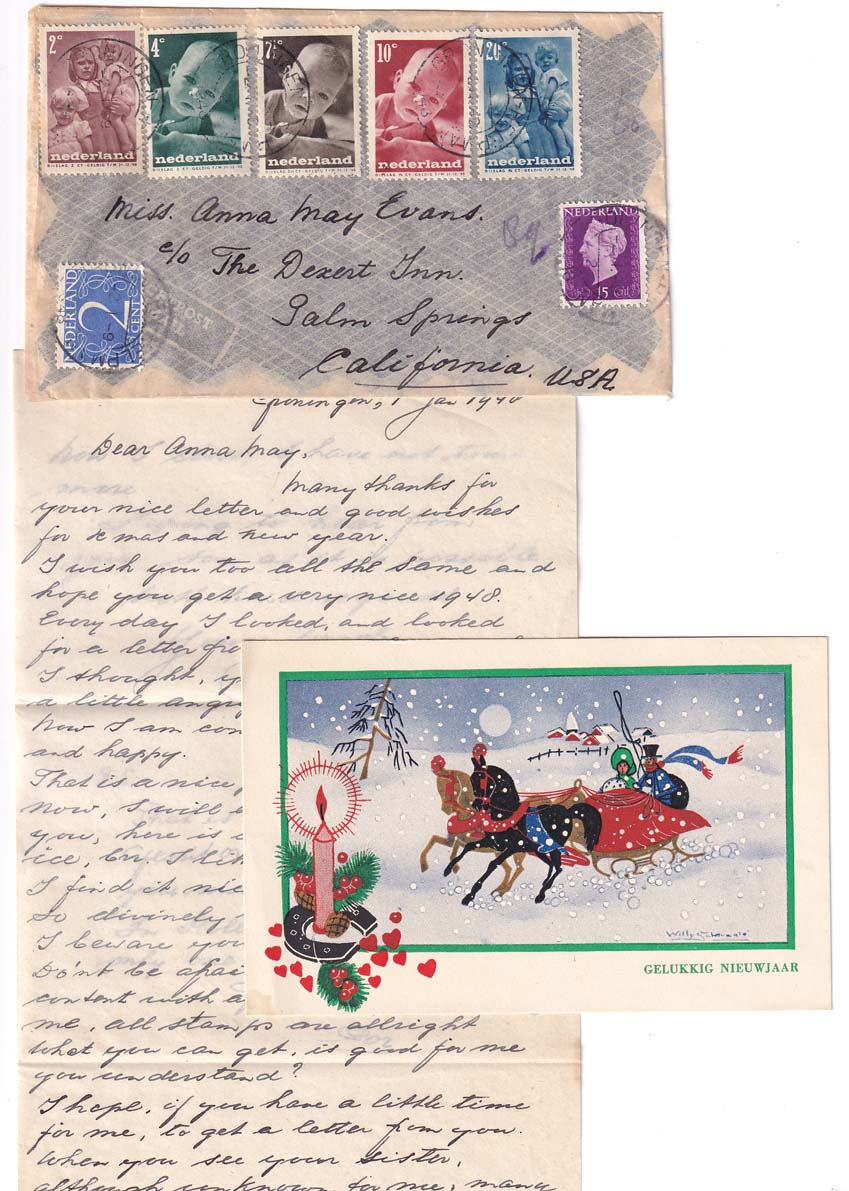 2c
4c
7½c
10c
20c
nederland
nederland
nederland
nederland
nederland
BIJSLAG 2 CT · GELDIG T/M 31·12·48
Miss. Anna May Evans.
c/o The Dezert Inn.
Palm Springs
California. USA.
NEDERLAND
15 Cnt
NEDERLAND
2
CENT
Groningen, 1 Jan 1948
Dear Anna May,
Many thanks for
your nice letter and good wishes
for Xmas and new year.
I wish you too all the same and
hope you get a very nice 1948.
Every day I looked, and looked
for a letter
I thought,
a little angry
Now I am con
and happy.
That is a nice
Now, I will
you, here is
ice, brr. I
I find it nice
so divinely
I beware you
Do'nt be afaid
content with a
me, all stamps are allright
What you can get, is good for me
you understand?
I hope, if you have a little time
for me, to get a letter from you.
When you see your sister,
although unknown for me, many
GELUKKIG NIEUWJAAR